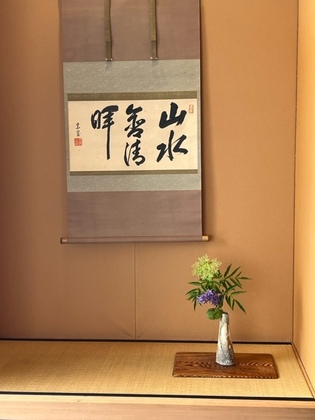 山水
含清
暉